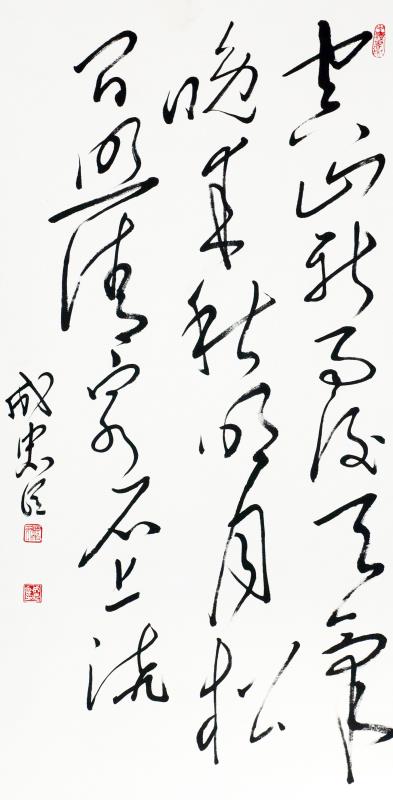 空山新雨後天氣
晚来秋明月松
间照清泉石上流
成忠